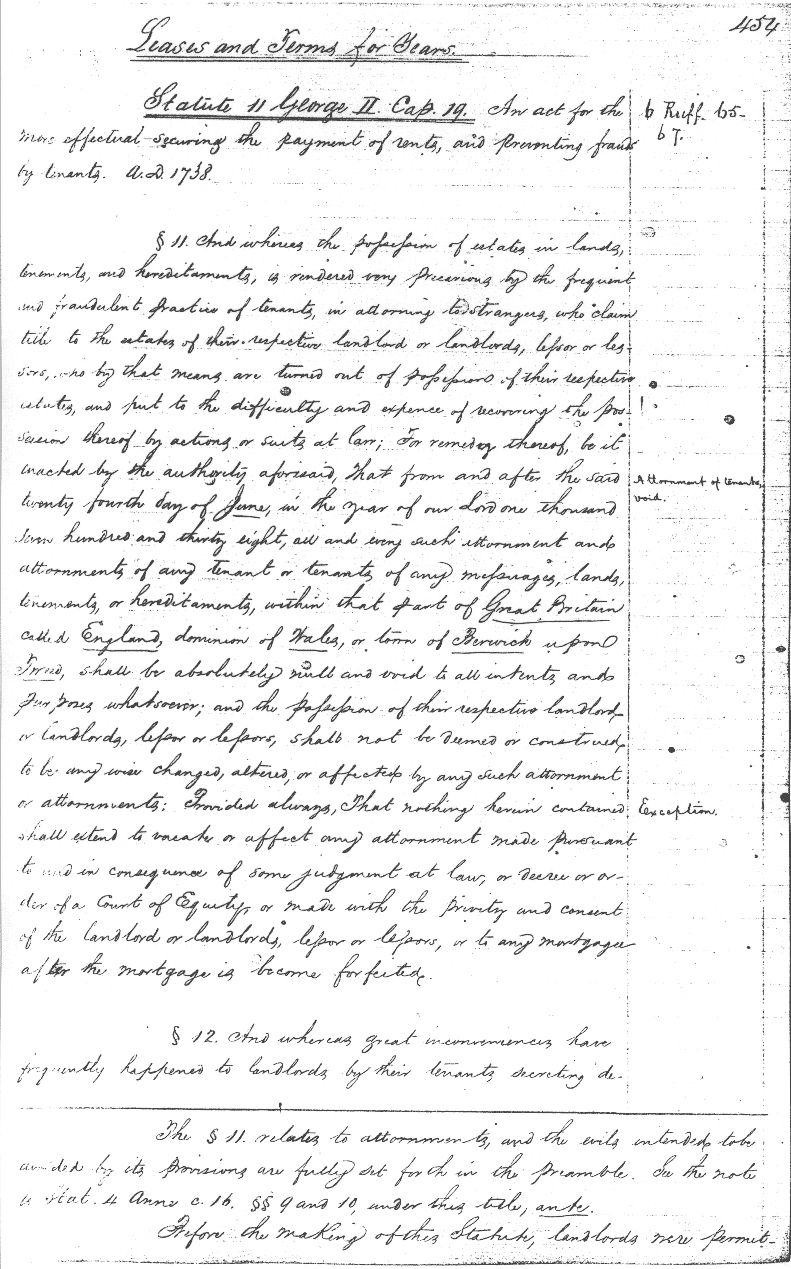 454
Leases and Terms for Years.
Statute 11 George II. Cap. 19. An act for the
6 Ruff. 65-
67.
more effectual securing the payment of rents, and preventing frauds
by tenants. A.D. 1738.
§ 11. And whereas the possession of estates in lands,
tenements, and hereditaments, is rendered very precarious by the frequent
and fraudulent practice of tenants, in attorning to strangers, who claim
title to the estates of their respective landlord or landlords, lessor or les-
sors, who by that means are turned out of possession of their respective
estates, and put to the difficulty and expence of recovering the pos-
session thereof by actions or suits at law; For remedy thereof, be it
enacted by the authority aforesaid, That from and after the said
Attornment of tenants,
void.
twenty fourth day of June, in the year of our Lord one thousand
seven hundred and thirty eight, all and every such attornment and
attornments of any tenant or tenants of any messuages, lands,
tenements, or hereditaments, within that part of Great Britain
called England, dominion of Wales, or town of Berwick upon
Tweed, shall be absolutely null and void to all intents and
purposes whatsoever; and the possession of their respective landlord
or landlords, lessor or lessors, shall not be deemed or construed
to be any wise changed, altered, or affected by any such attornment
or attornments: Provided always, That nothing herein contained
Exception.
shall extend to vacate or affect any attornment made pursuant
to and in consequence of some judgment at law, or decree or or-
der of a Court of Equity, or made with the privity and consent
of the landlord or landlords, lessor or lessors, or to any mortgagee
after the mortgage is become forfeited.
§ 12. And whereas great inconveniences have
frequently happened to landlords by their tenants secreting de-
The § 11. relates to attornments, and the evils intended to be
avoided by its provisions are fully set forth in the preamble. See the note
to Stat. 4 Anne c. 16. §§ 9 and 10, under this title, ante.
Before the making of this Statute, landlords were permit-